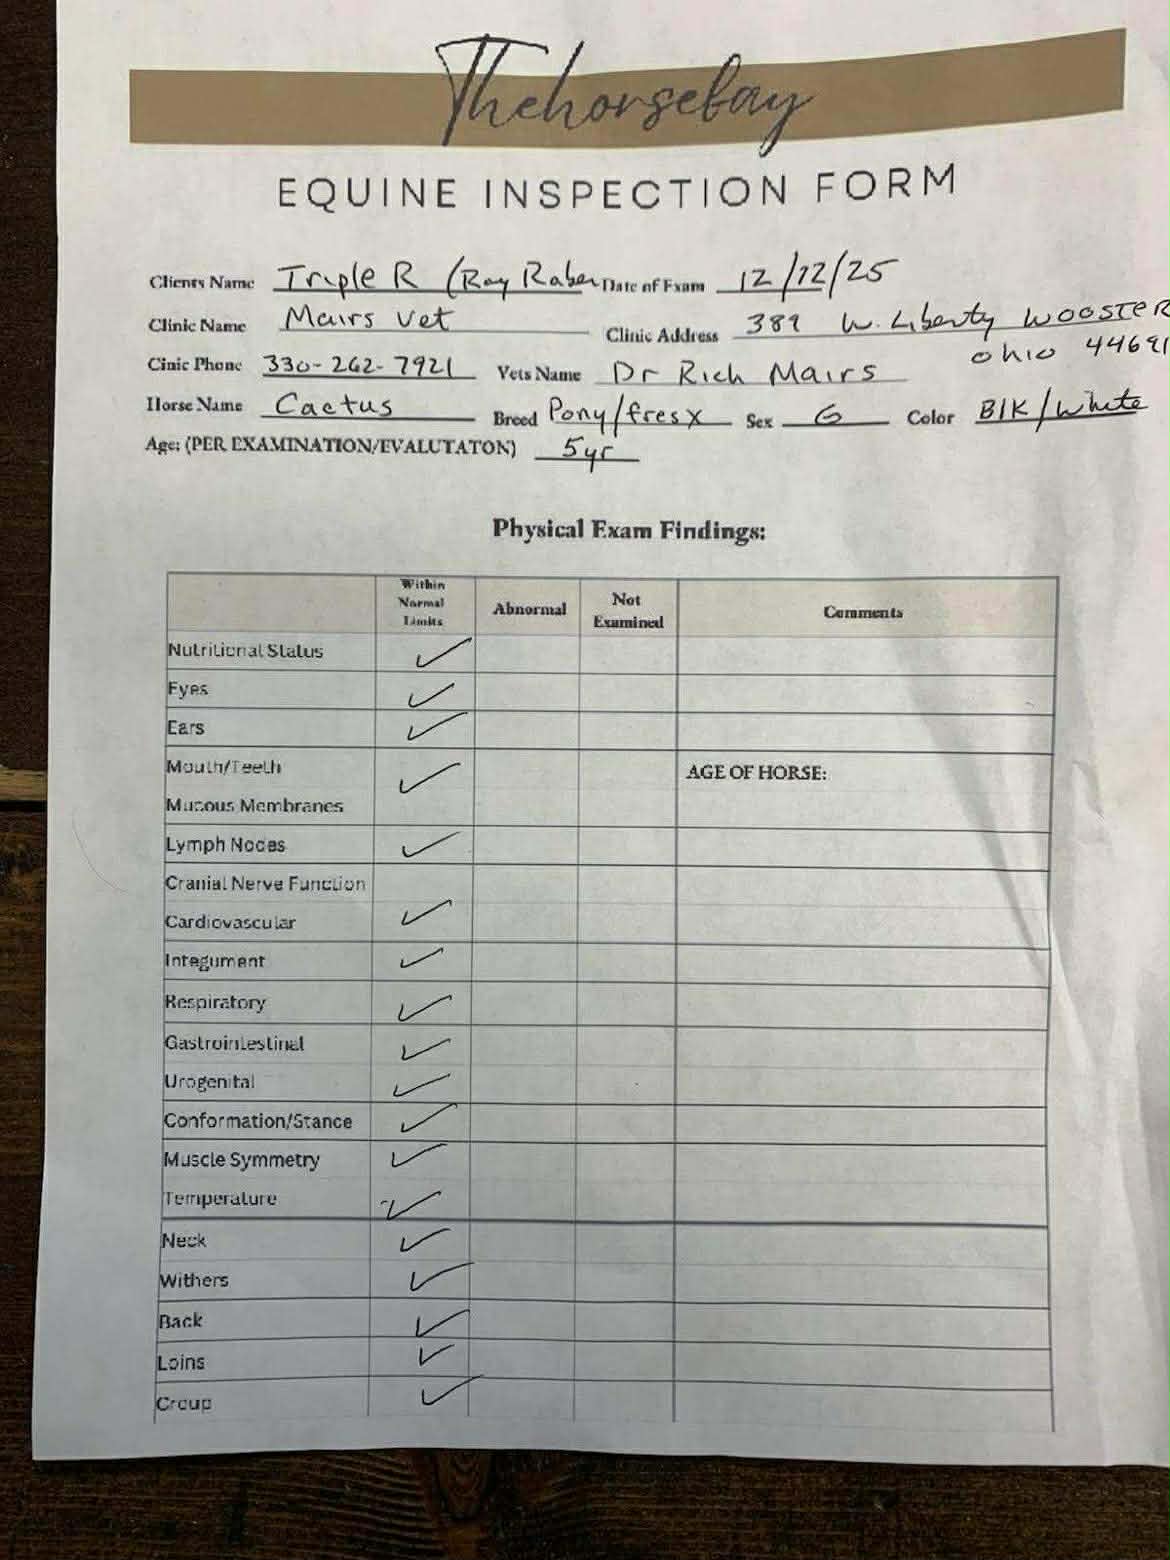 Thehorsebay
EQUINE INSPECTION FORM
Clients Name Triple R (Roy Raber Date of Exam 12/12/25
Clinic Name Mairs Vet Clinic Address 389 W. Liberty WOOSTER
ohio 44691
Cinic Phone 330-262-7921 Vets Name Dr Rich Mairs
Horse Name Cactus Breed Pony/fresx Sex G Color Blk/white
Age: (PER EXAMINATION/EVALUTATON) 5yr
Physical Exam Findings:
Within Normal Limits Abnormal Not Examined Comments
Nutritional Status ✓
Eyes ✓
Ears ✓
Mouth/Teeth ✓ AGE OF HORSE:
Mucous Membranes
Lymph Nodes ✓
Cranial Nerve Function
Cardiovascular ✓
Integument ✓
Respiratory ✓
Gastrointestinal ✓
Urogenital ✓
Conformation/Stance ✓
Muscle Symmetry ✓
Temperature ✓
Neck ✓
Withers ✓
Back ✓
Loins ✓
Croup ✓